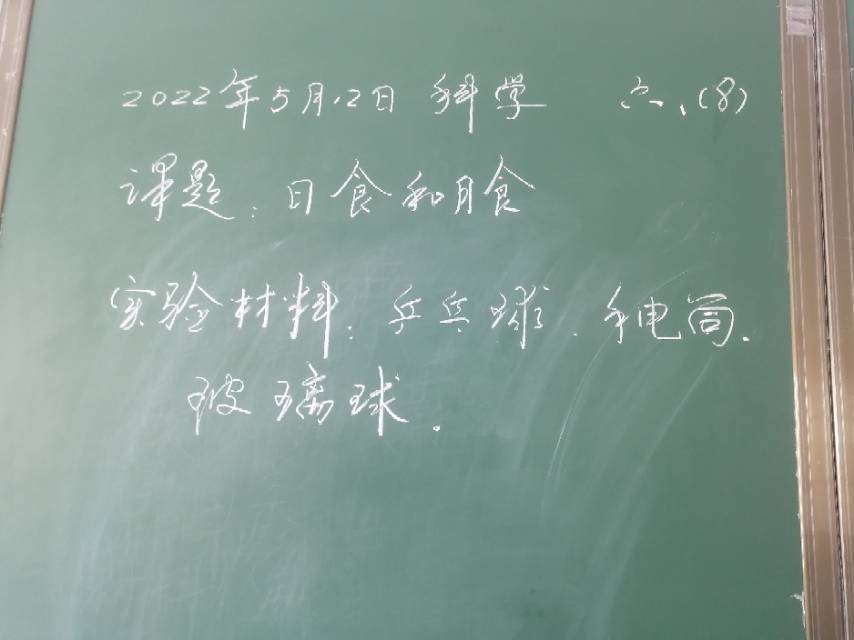 2022年5月12日 科学 六、(8)
课题：日食和月食
实验材料：乒乓球、手电筒、
玻璃球.